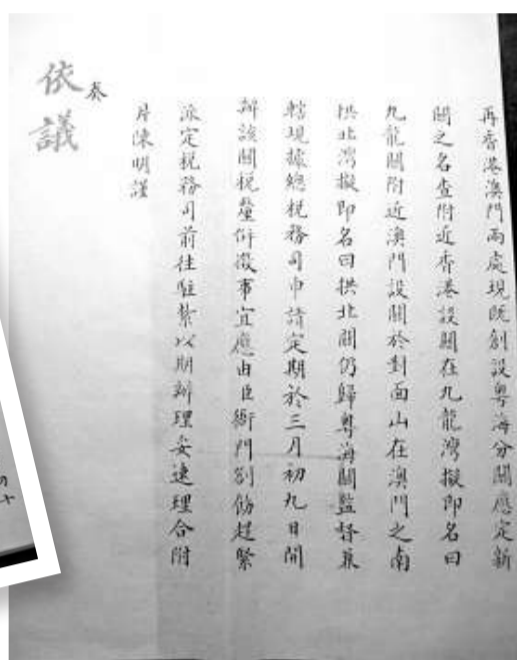 再香港澳門兩處現既創設粵海分關應定新
關之名查附近香港設關在九龍灣擬即名曰
九龍關附近澳門設關於對面山在澳門之南
拱北灣擬即名曰拱北關仍歸粵海關監督兼
轄現據總稅務司申請定期於三月初九日開
辦該關稅釐併徵事宜應由臣衙門劄飭赶緊
派定稅務司前往駐紮以期辦理妥速理合附
片陳明謹
奏
依議